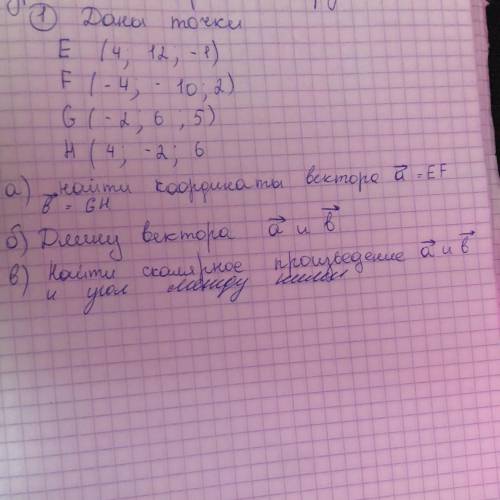 ① Даны точки
E (4; 12; -1)
F (-4; -10; 2)
G (-2; 6; 5)
H (4; -2; 6
а) найти координаты вектора a⃗ = EF
b⃗ = GH
б) Длину вектора a⃗ и b⃗
в) Найти скалярное произведение a⃗ и b⃗
и угол между ними